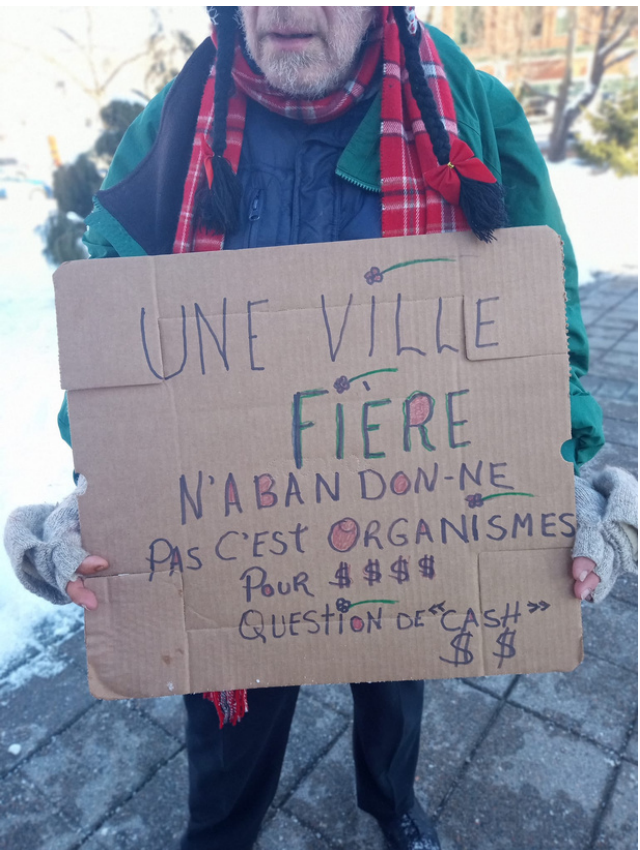 UNE VILLE
FIÈRE
N'ABANDON-NE
PAS C'EST ORGANISMES
POUR $$$$
QUESTION DE "CASH"
$$